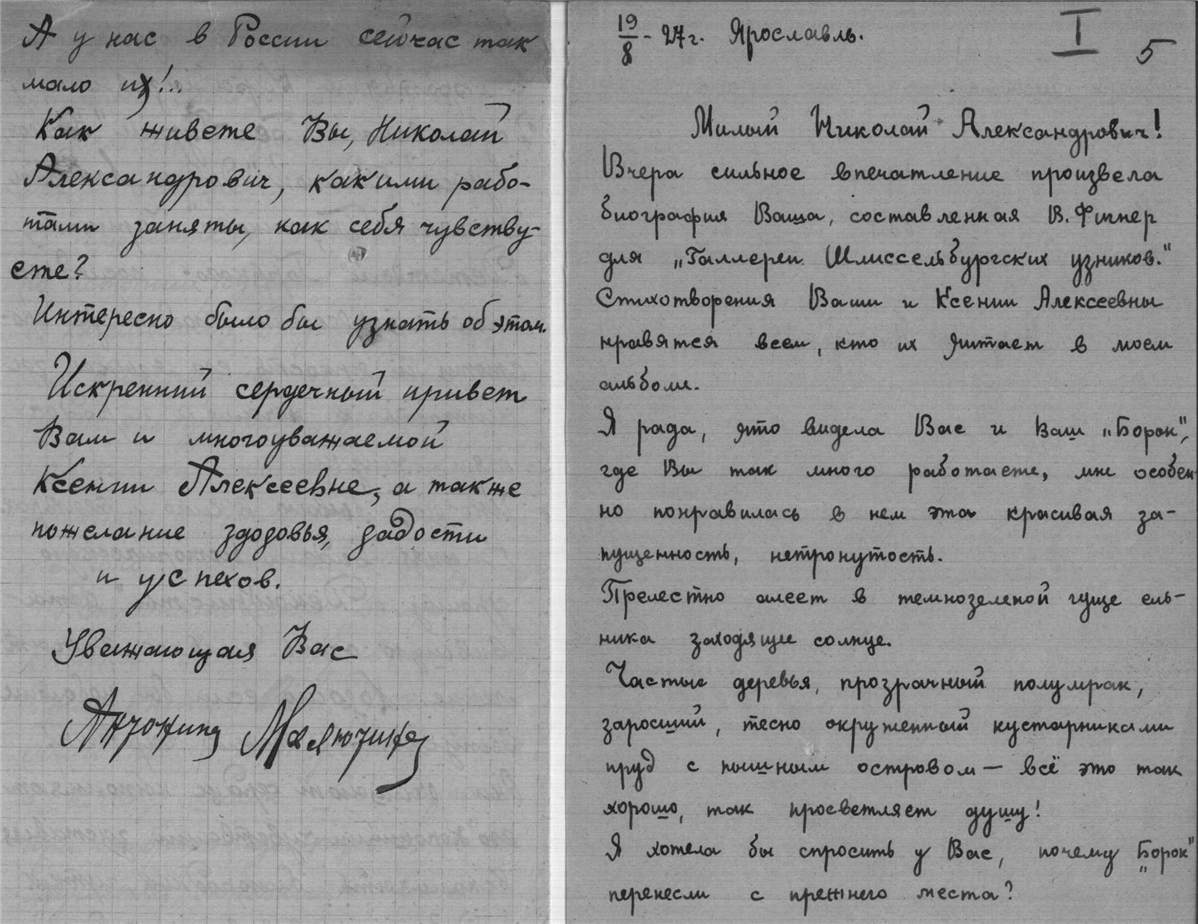 А у нас в России сейчас так
мало их!..
Как живете Вы, Николай
Александрович, какими рабо-
тами заняты, как себя чувству-
ете?
Интересно было бы узнать об этом.
Искренний сердечный привет
Вам и многоуважаемой
Ксении Алексеевне, а также
пожелание здоровья, радости
и успехов.
Уважающая Вас
Антонина Малютина
19/8 - 27 г. Ярославль.
I
5
Милый Николай Александрович!
Вчера сильное впечатление произвела
биография Ваша, составленная В. Фигнер
для „Галлереи Шлиссельбургских узников."
Стихотворения Ваши и Ксении Алексеевны
нравятся всем, кто их читает в моем
альбоме.
Я рада, что видела Вас и Ваш „Борок",
где Вы так много работаете, мне особен-
но понравилась в нем эта красивая за-
пущенность, нетронутость.
Прелестно алеет в темнозеленой гуще ель-
ника заходящее солнце.
Частые деревья, прозрачный полумрак,
заросший, тесно окруженный кустарниками
пруд с пышным островом — всё это так
хорошо, так просветляет душу!
Я хотела бы спросить у Вас, почему „Борок"
перенесли с прежнего места?